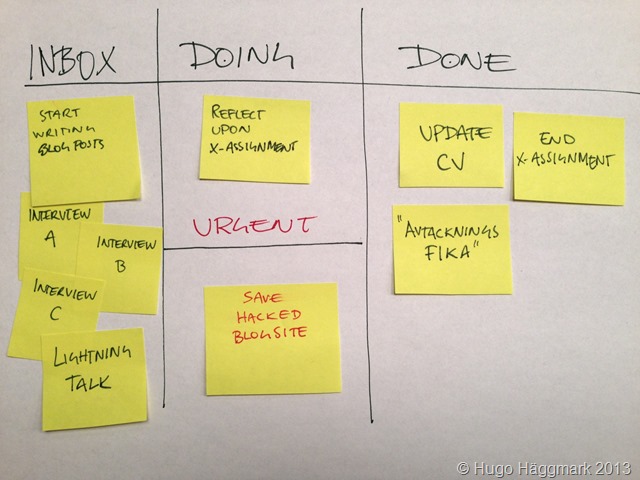 INBOX
DOING
DONE
START
WRITING
BLOG POSTS
INTERVIEW
A
INTERVIEW
B
INTERVIEW
C
LIGHTNING
TALK
REFLECT
UPON
X-ASSIGNMENT
URGENT
SAVE
HACKED
BLOGSITE
UPDATE
CV
END
X-ASSIGNMENT
"AVTACKNINGS
FIKA"
© Hugo Häggmark 2013